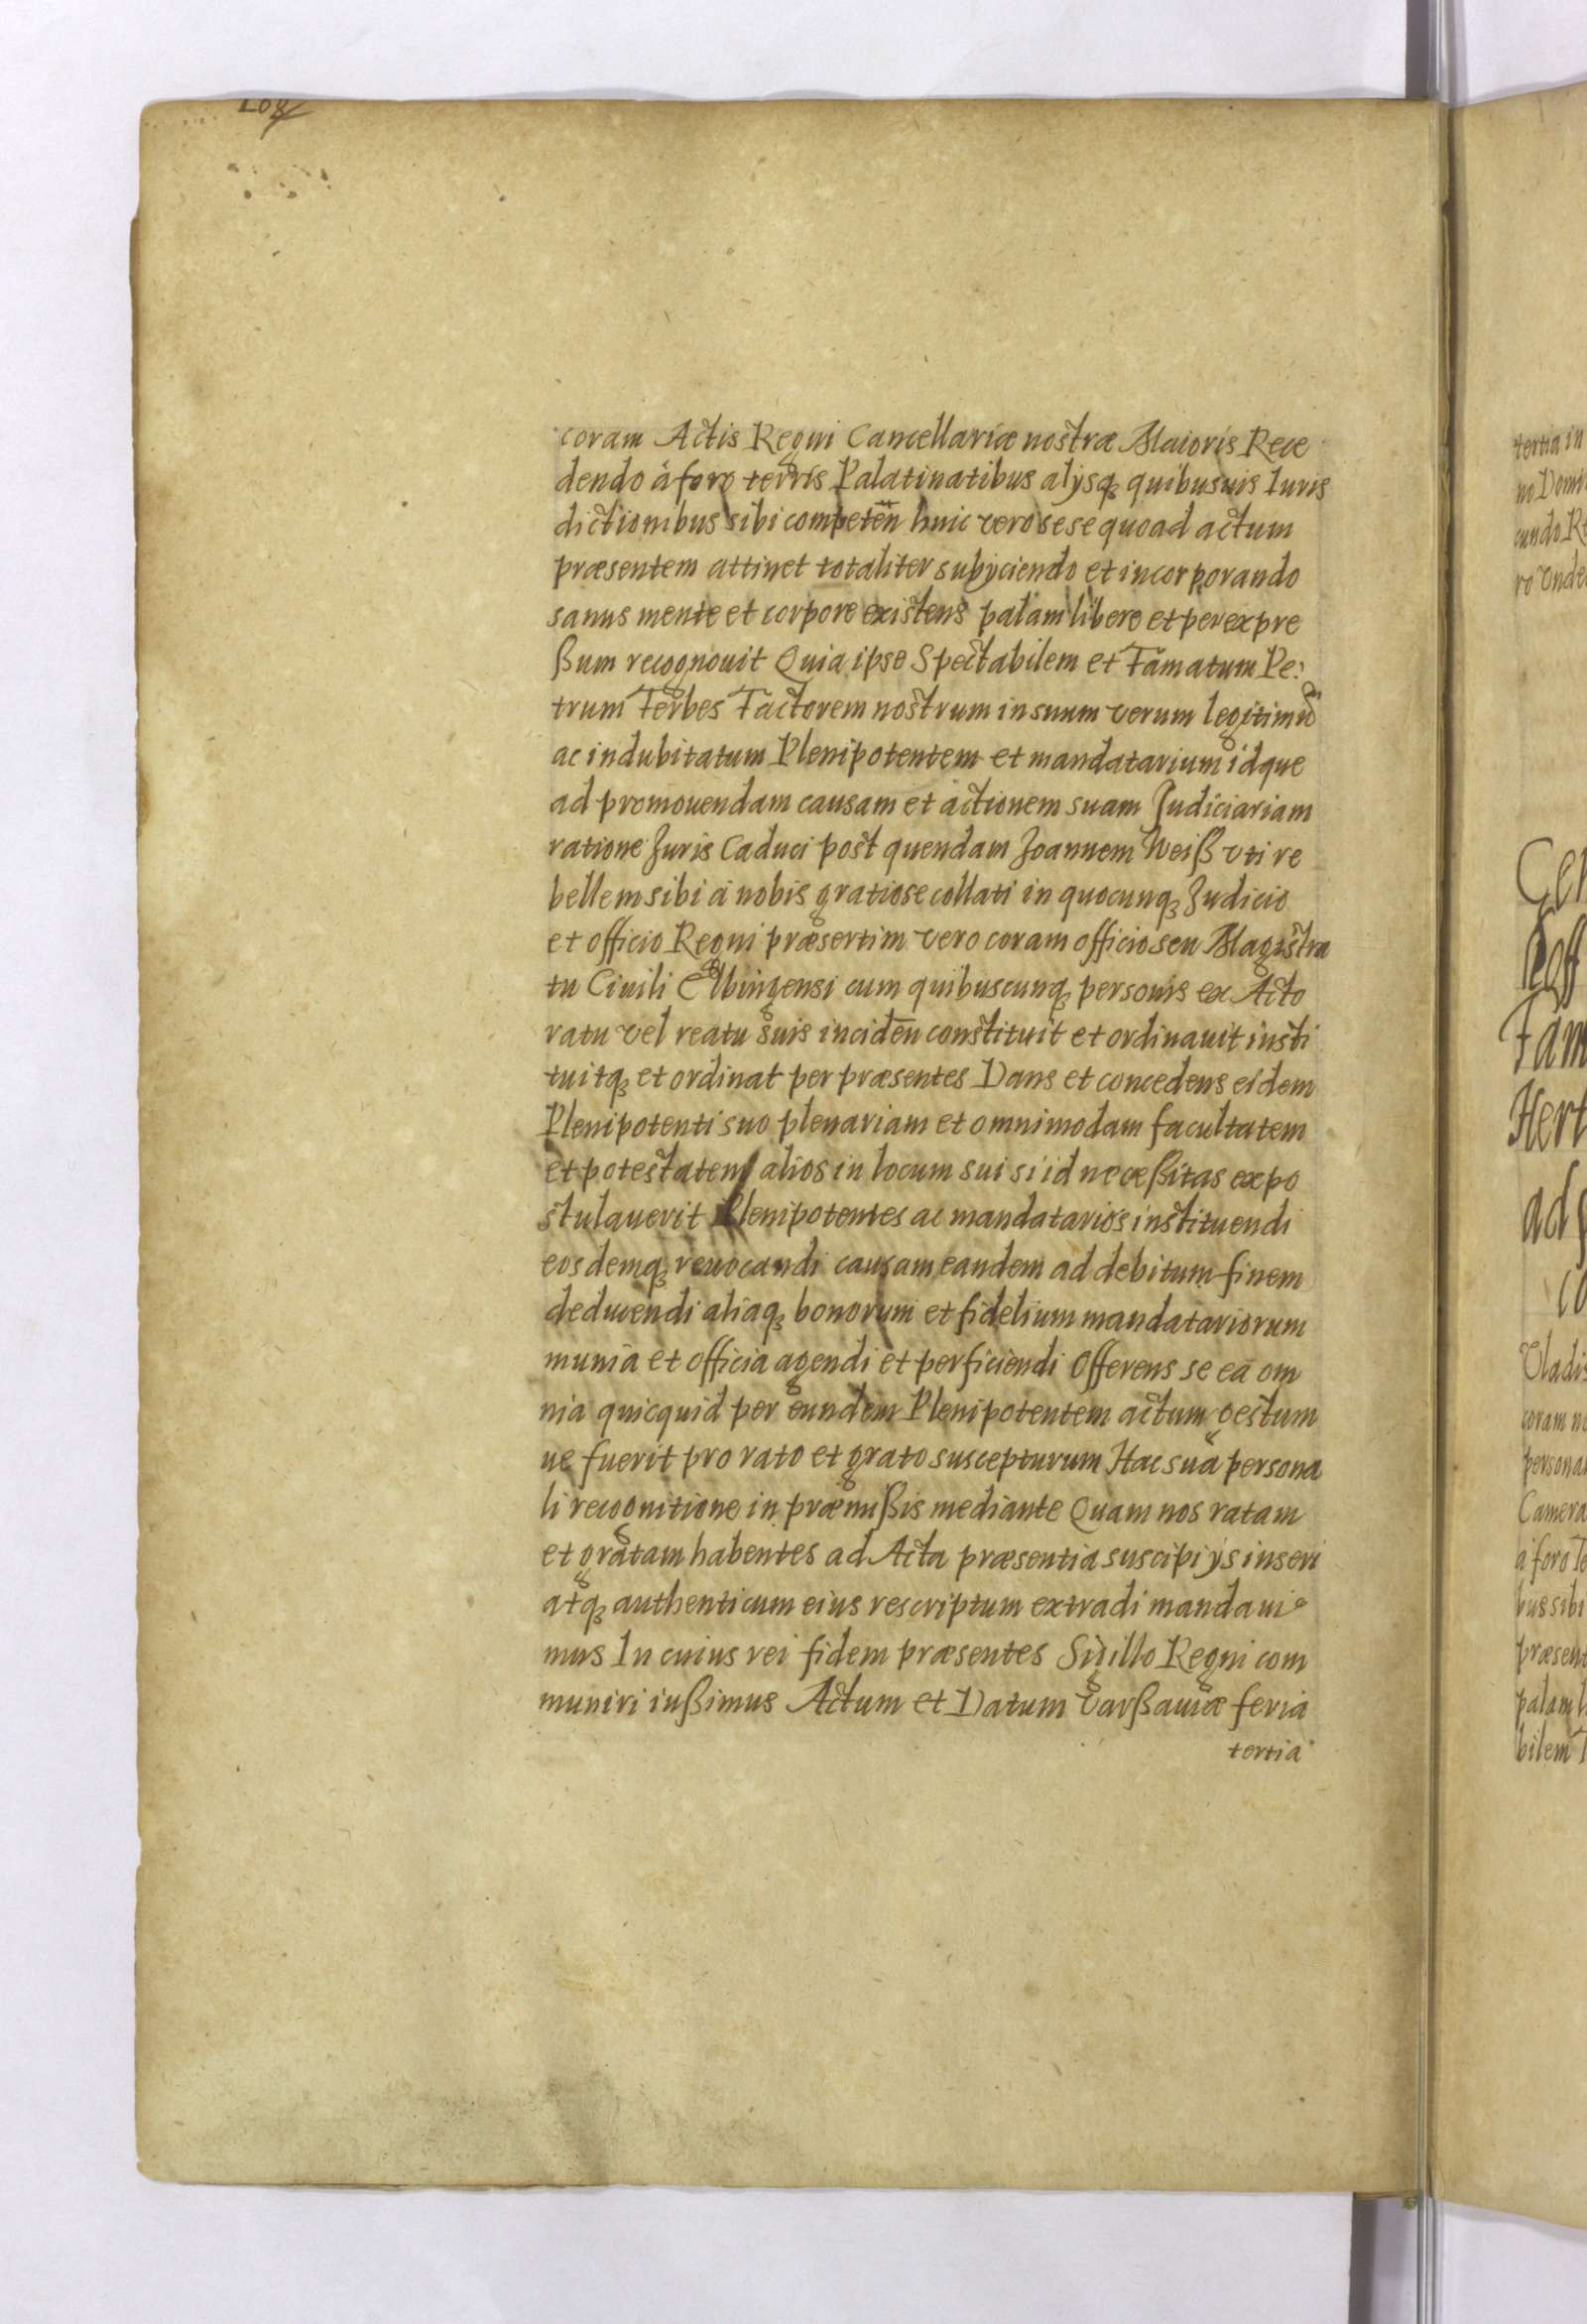 108
coram Actis Regni Cancellariæ nostræ Maioris Rece
dendo à foro terris Palatinatibus alijsq quibusuis Iuris
dictionibus sibi competen̄ huic vero sese quoad actum
præsentem attinet totaliter subijciendo et incorporando
sanus mente et corpore existens palam libere et per expre
ßum recognouit Quia ipse Spectabilem et Famatum Pe:
trum Ferbes Factorem nostrum in suum verum legitimū
ac indubitatum Plenipotentem et mandatarium idque
ad promouendam causam et actionem suam Judiciariam
ratione Juris Caduci post quendam Joannem Weiß vti re
bellem sibi à nobis gratiose collati in quocunq Judicio
et officio Regni præsertim vero coram officio seu Magistra
tu Ciuili Elbingensi cum quibuscunq personis ex Acto
ratu vel reatu suis inciden̄ constituit et ordinauit insti
tuitq et ordinat per præsentes Dans et concedens eidem
Plenipotenti suo plenariam et omnimodam facultatem
et potestatem alios in locum sui si id neceßitas expo
stulauerit Plenipotentes ac mandatarios instituendi
eosdemq reuocandi causam eandem ad debitum finem
deducendi aliaq bonorum et fidelium mandatariorum
munia et officia agendi et perficiendi Offerens se ea om
nia quicquid per eundem Plenipotentem actum gestum
ue fuerit pro rato et grato suscepturum Hac sua persona
li recognitione in præmißis mediante Quam nos ratam
et gratam habentes ad Acta præsentia suscipi ijs inseri
atq authenticum eius rescriptum extradi mandaui
mus In cuius rei fidem præsentes Sigillo Regni com
muniri iußimus Actum et Datum Varßauiæ feria
tertia
tertia in
no Domi
cundo R
ro Vnde
Cer
Fam
Hert
ad
co
Vladis
coram no
persona
Camera
à foro Te
bus sibi
præsent
palam l
bilem